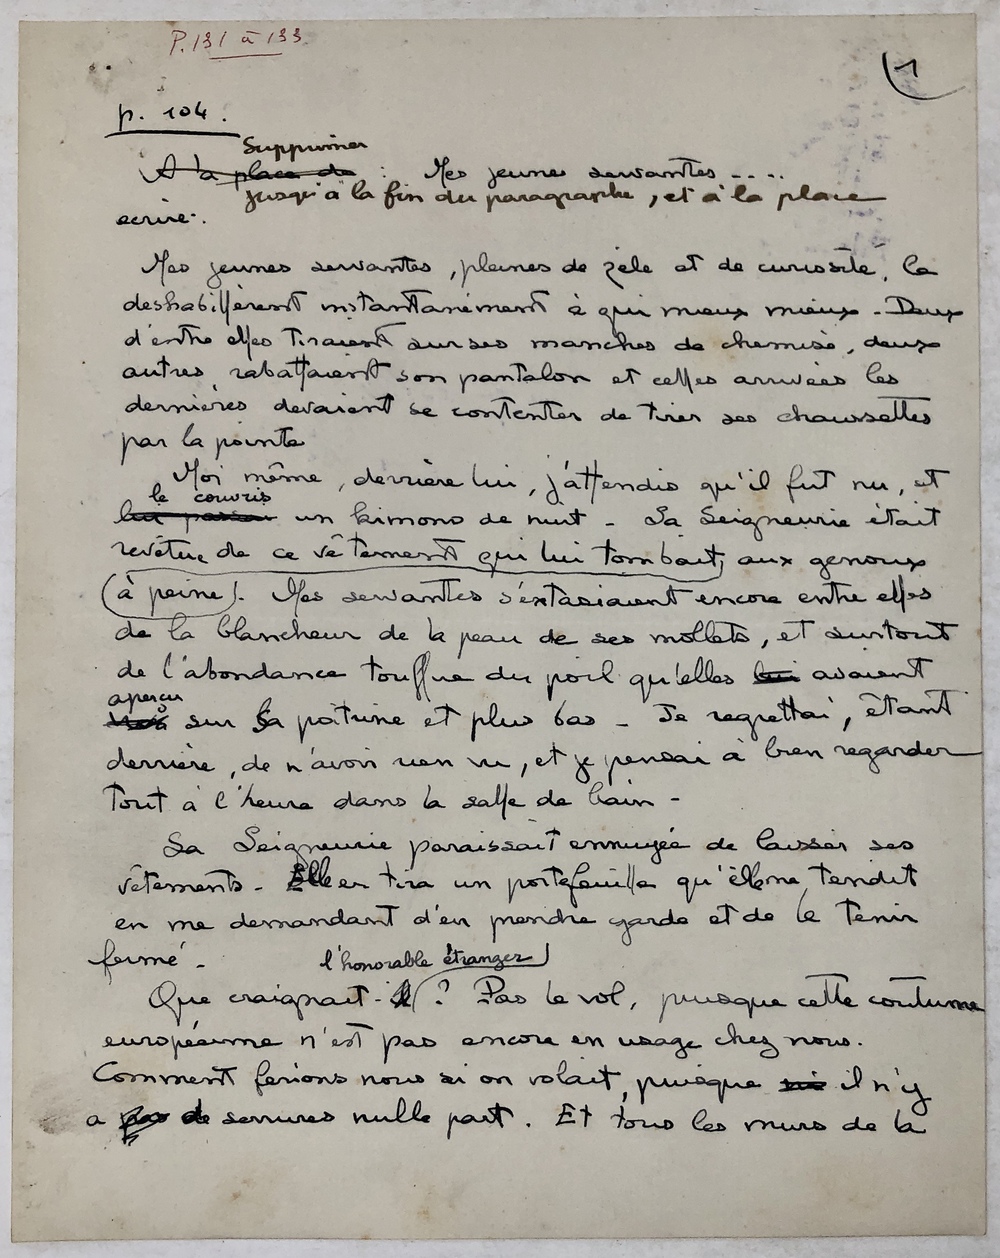 P. 131 à 133
1
p. 104.
Supprimer
A la place de : Mes jeunes servantes ....
jusqu'à la fin du paragraphe, et à la place
ecrire:
Mes jeunes servantes, pleines de zèle et de curiosité, le
deshabillèrent instantanément à qui mieux mieux - Deux
d'entre elles tiraient sur ses manches de chemise, deux
autres, rabattaient son pantalon et celles arrivées les
dernières devaient se contenter de tirer ses chaussettes
par la pointe
Moi même, derrière lui, j'attendis qu'il fut nu, et
le couvris
lui passai un kimono de nuit - Sa Seigneurie était
revêtue de ce vêtement qui lui tombait, aux genoux
(à peine). Mes servantes s'extasiaient encore entre elles
de la blancheur de la peau de ses mollets, et surtout
de l'abondance touffue du poil qu'elles lui avaient
aperçu
sur sa poitrine et plus bas - Je regrettai, étant
derrière, de n'avoir rien vu, et je pensai à bien regarder
tout à l'heure dans la salle de bain -
Sa Seigneurie paraissait ennuyée de laisser ses
vêtements - Elle en tira un portefeuille qu'elle me tendit
en me demandant d'en prendre garde et de le tenir
fermé -
l'honorable étranger
Que craignait-il ? Pas le vol, puisque cette coutume
européenne n'est pas encore en usage chez nous.
Comment ferions nous si on volait, puisque il n'y
a pas de serrures nulle part. Et tous les murs de la